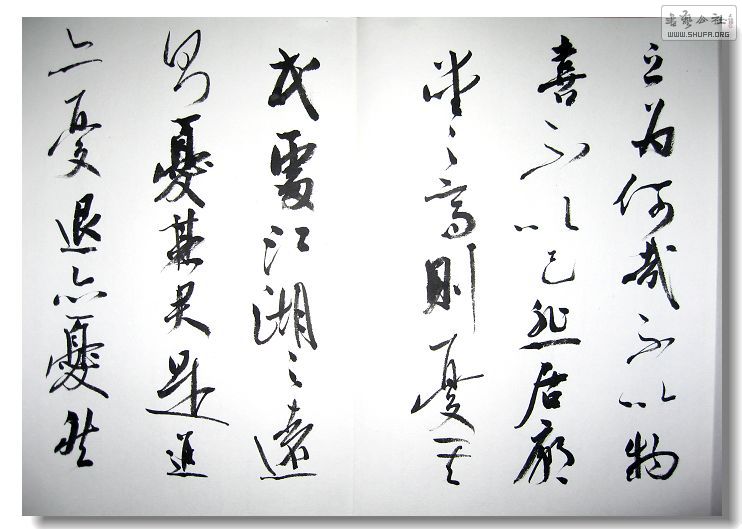 之为何哉不以物
喜不以己悲居廟
堂之高則憂其
民處江湖之遠
則憂其君是進
亦憂退亦憂然
书艺公社
WWW.SHUFA.ORG